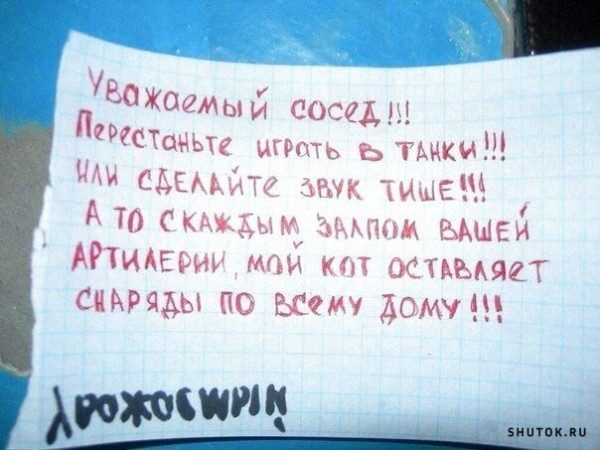 Уважаемый сосед!!!
Перестаньте играть в танки!!!
Или сделайте звук тише!!!
А то с каждым залпом вашей
артилерии, мой кот оставляет
снаряды по всему дому!!!
SHUTOK.RU